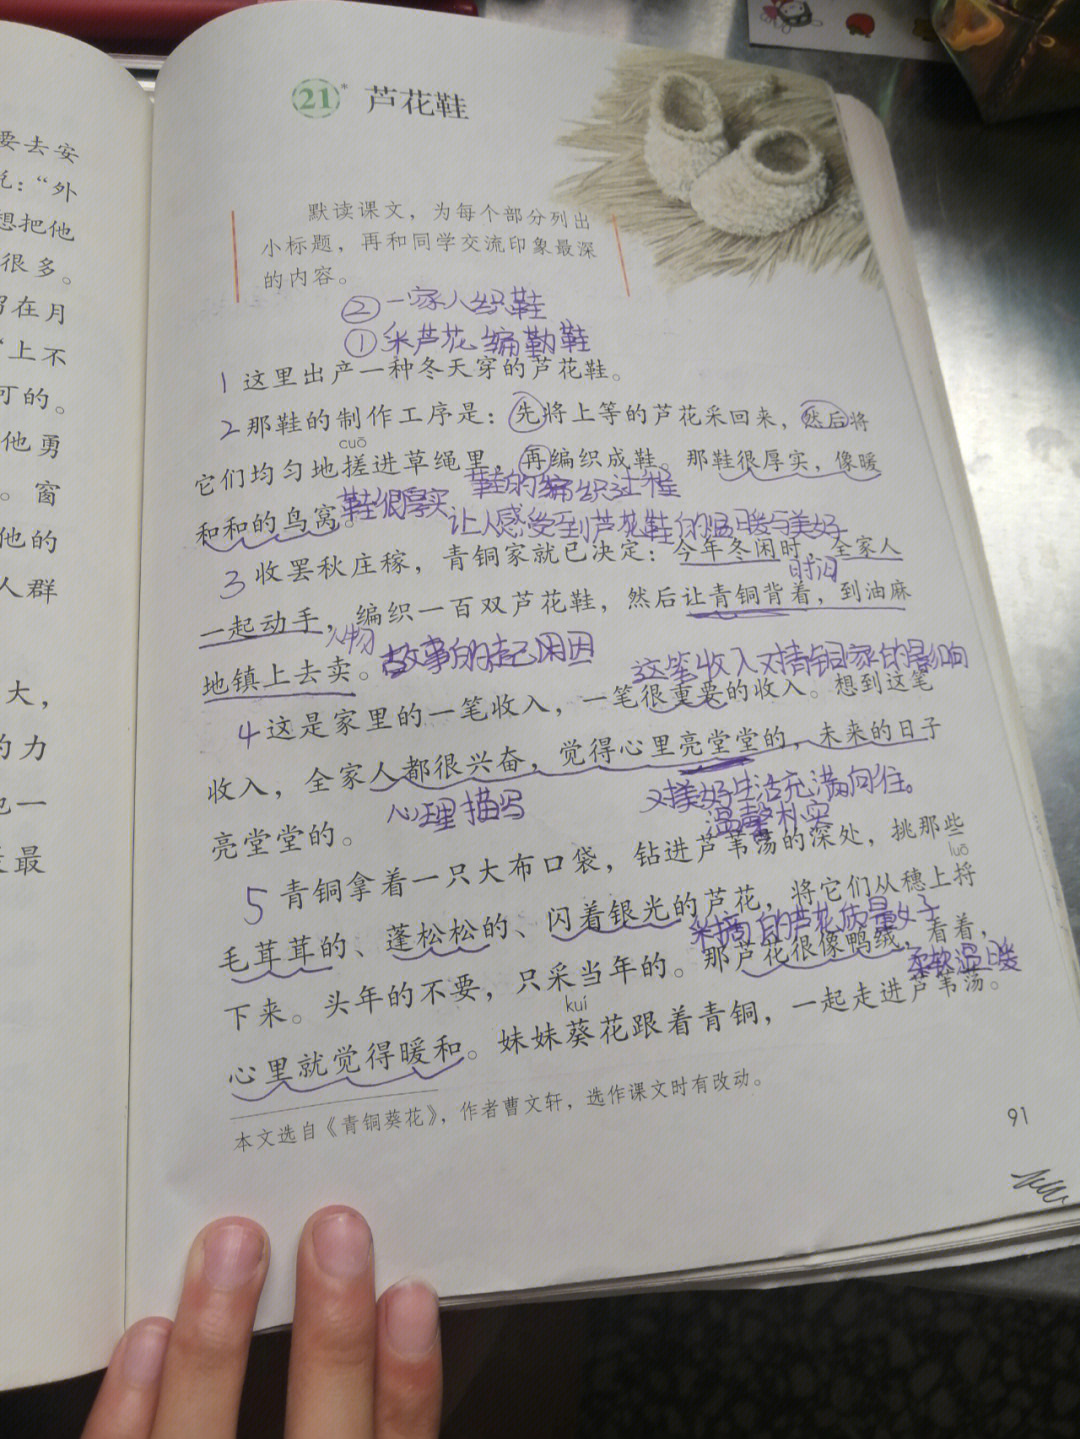 要去安
说：“外
想把他
很多。
留在月
“上不
可的。
他勇
。窗
他的
人群
大，
的力
一
最
21* 芦花鞋
默读课文，为每个部分列出
小标题，再和同学交流印象最深
的内容。
②一家人织鞋
①采芦花 编勒鞋
1 这里出产一种冬天穿的芦花鞋。
2 那鞋的制作工序是：先将上等的芦花采回来，然后将
cuō
它们均匀地搓进草绳里，再编织成鞋。那鞋很厚实，像暖
鞋的编织过程
和和的鸟窝
鞋很厚实 让人感受到芦花鞋的温暖与美好
3 收罢秋庄稼，青铜家就已决定：今年冬闲时，全家人
时间
一起动手，编织一百双芦花鞋，然后让青铜背着，到油麻
人物
地镇上去卖。
故事的起因 这笔收入对青铜家的影响
4 这是家里的一笔收入，一笔很重要的收入。想到这笔
收入，全家人都很兴奋，觉得心里亮堂堂的，未来的日子
心理描写 对美好生活充满向往。
温馨朴实
亮堂堂的。
5 青铜拿着一只大布口袋，钻进芦苇荡的深处，挑那些
luō
毛茸茸的、蓬松松的、闪着银光的芦花，将它们从穗上捋
采摘的芦花质量好
下来。头年的不要，只采当年的。那芦花很像鸭绒，看着，
柔软温暖
kuí
心里就觉得暖和。妹妹葵花跟着青铜，一起走进芦苇荡。
本文选自《青铜葵花》，作者曹文轩，选作课文时有改动。
91